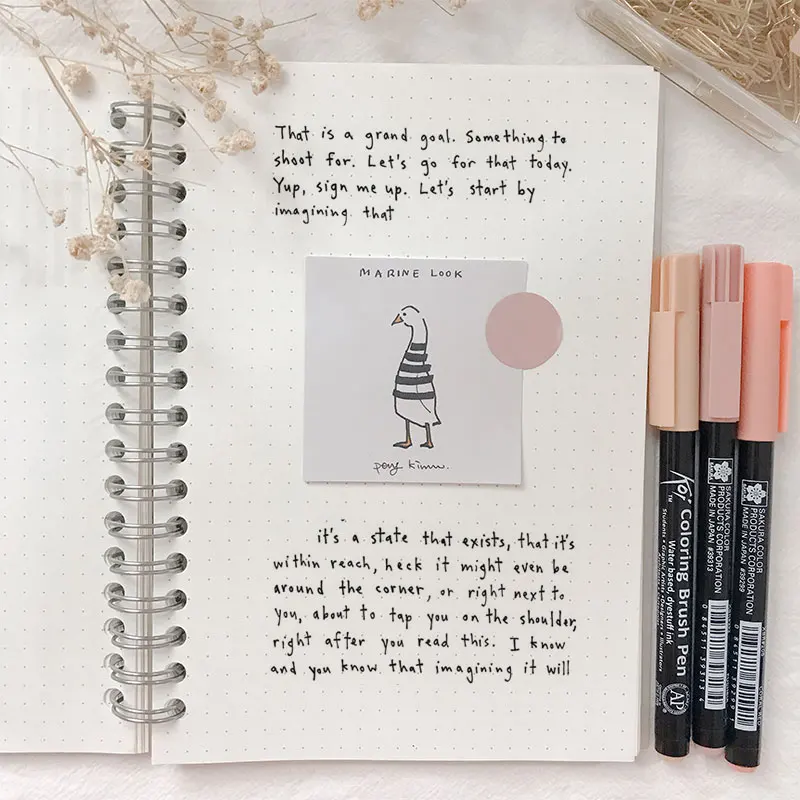 That is a grand goal. Something to
shoot for. Let's go for that today.
Yup, sign me up. Let's start by
imagining that
MARINE LOOK
it's a state that exists, that it's
within reach, heck it might even be
around the corner, or right next to
you, about to tap you on the shoulder,
right after you read this. I know
and you know that imagining it will
Koi Coloring Brush Pen
Water based, dyestuff ink
Students • Graphic Artists • Designers • Illustrators
AP
SAKURA COLOR
PRODUCTS CORPORATION
MADE IN JAPAN #39313
0 84511 39313 4
SAKURA COLOR
PRODUCTS CORPORATION
MADE IN JAPAN #39299